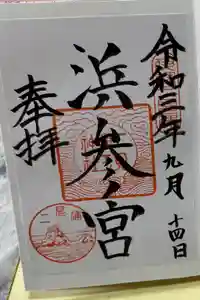 令和三年九月十四日
浜参宮
奉拝